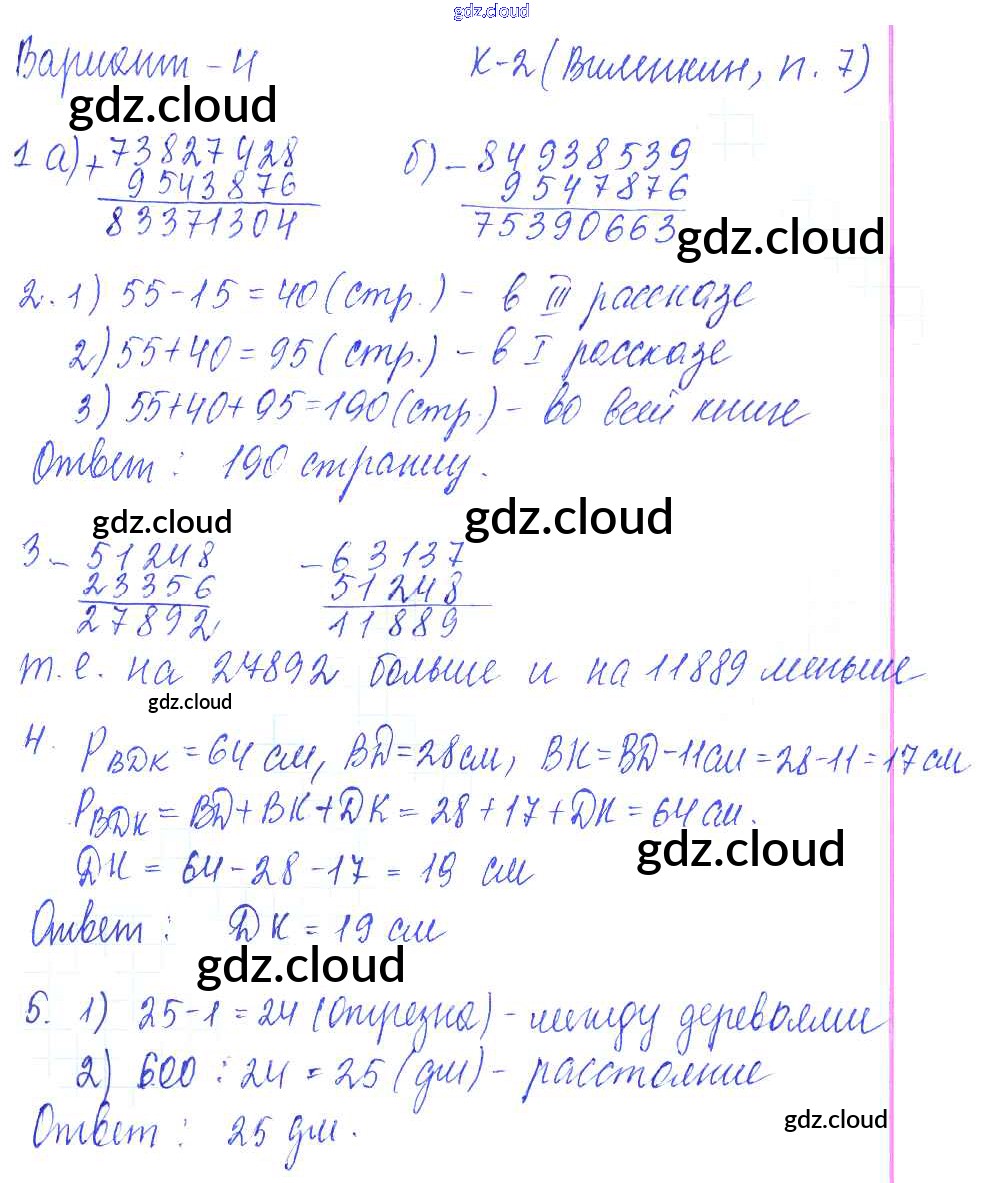 gdz.cloud
Вариант - 4 К-2 (Виленкин, п. 7)
gdz.cloud
1 а) + 73827428 б) - 84938539
9543876 9547876
83371304 75390663
gdz.cloud
2. 1) 55-15=40 (стр.) - в III рассказе
2) 55+40=95 (стр.) - в I рассказе
3) 55+40+95=190 (стр.) - во всей книге
Ответ: 190 страниц.
gdz.cloud gdz.cloud
3 - 51248 - 63137
23356 51248
27892 11889
т.е. на 27892 больше и на 11889 меньше
gdz.cloud
4. PВДК = 64 см, ВД=28см, ВК=ВД-11см=28-11=17см
PВДК = ВД+ВК+ДК = 28+17+ДК=64см.
gdz.cloud
ДК = 64-28-17 = 19 см
Ответ: ДК = 19 см
gdz.cloud
5. 1) 25-1=24 (отрезка) - между деревьями
2) 600 : 24 = 25 (дм) - расстояние
gdz.cloud
Ответ: 25 дм.